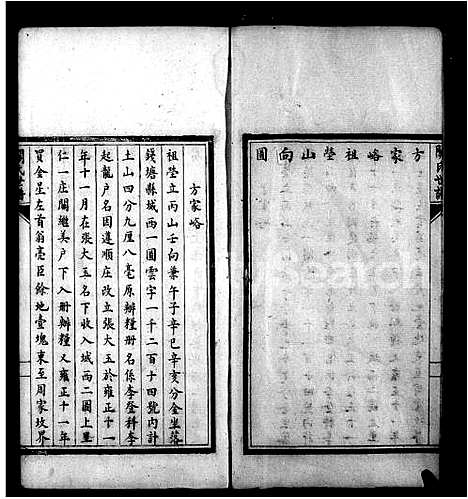 方家峪祖塋山向圖
方家峪
祖塋立丙山壬向兼午子辛巳辛亥分金坐落
錢塘縣城西一圖雲字一千二百十四號內計
土山四分九厘八毫原辦糧冊名係李登科李
起龍戶名因遵順庄改立張大玉於雍正十一
年十一月在張大玉名下收入城西二圖上里
仁一庄關繼美戶下入冊辦糧又雍正十一年
買金星左首翁亮臣餘地壹塊東至周家坟界